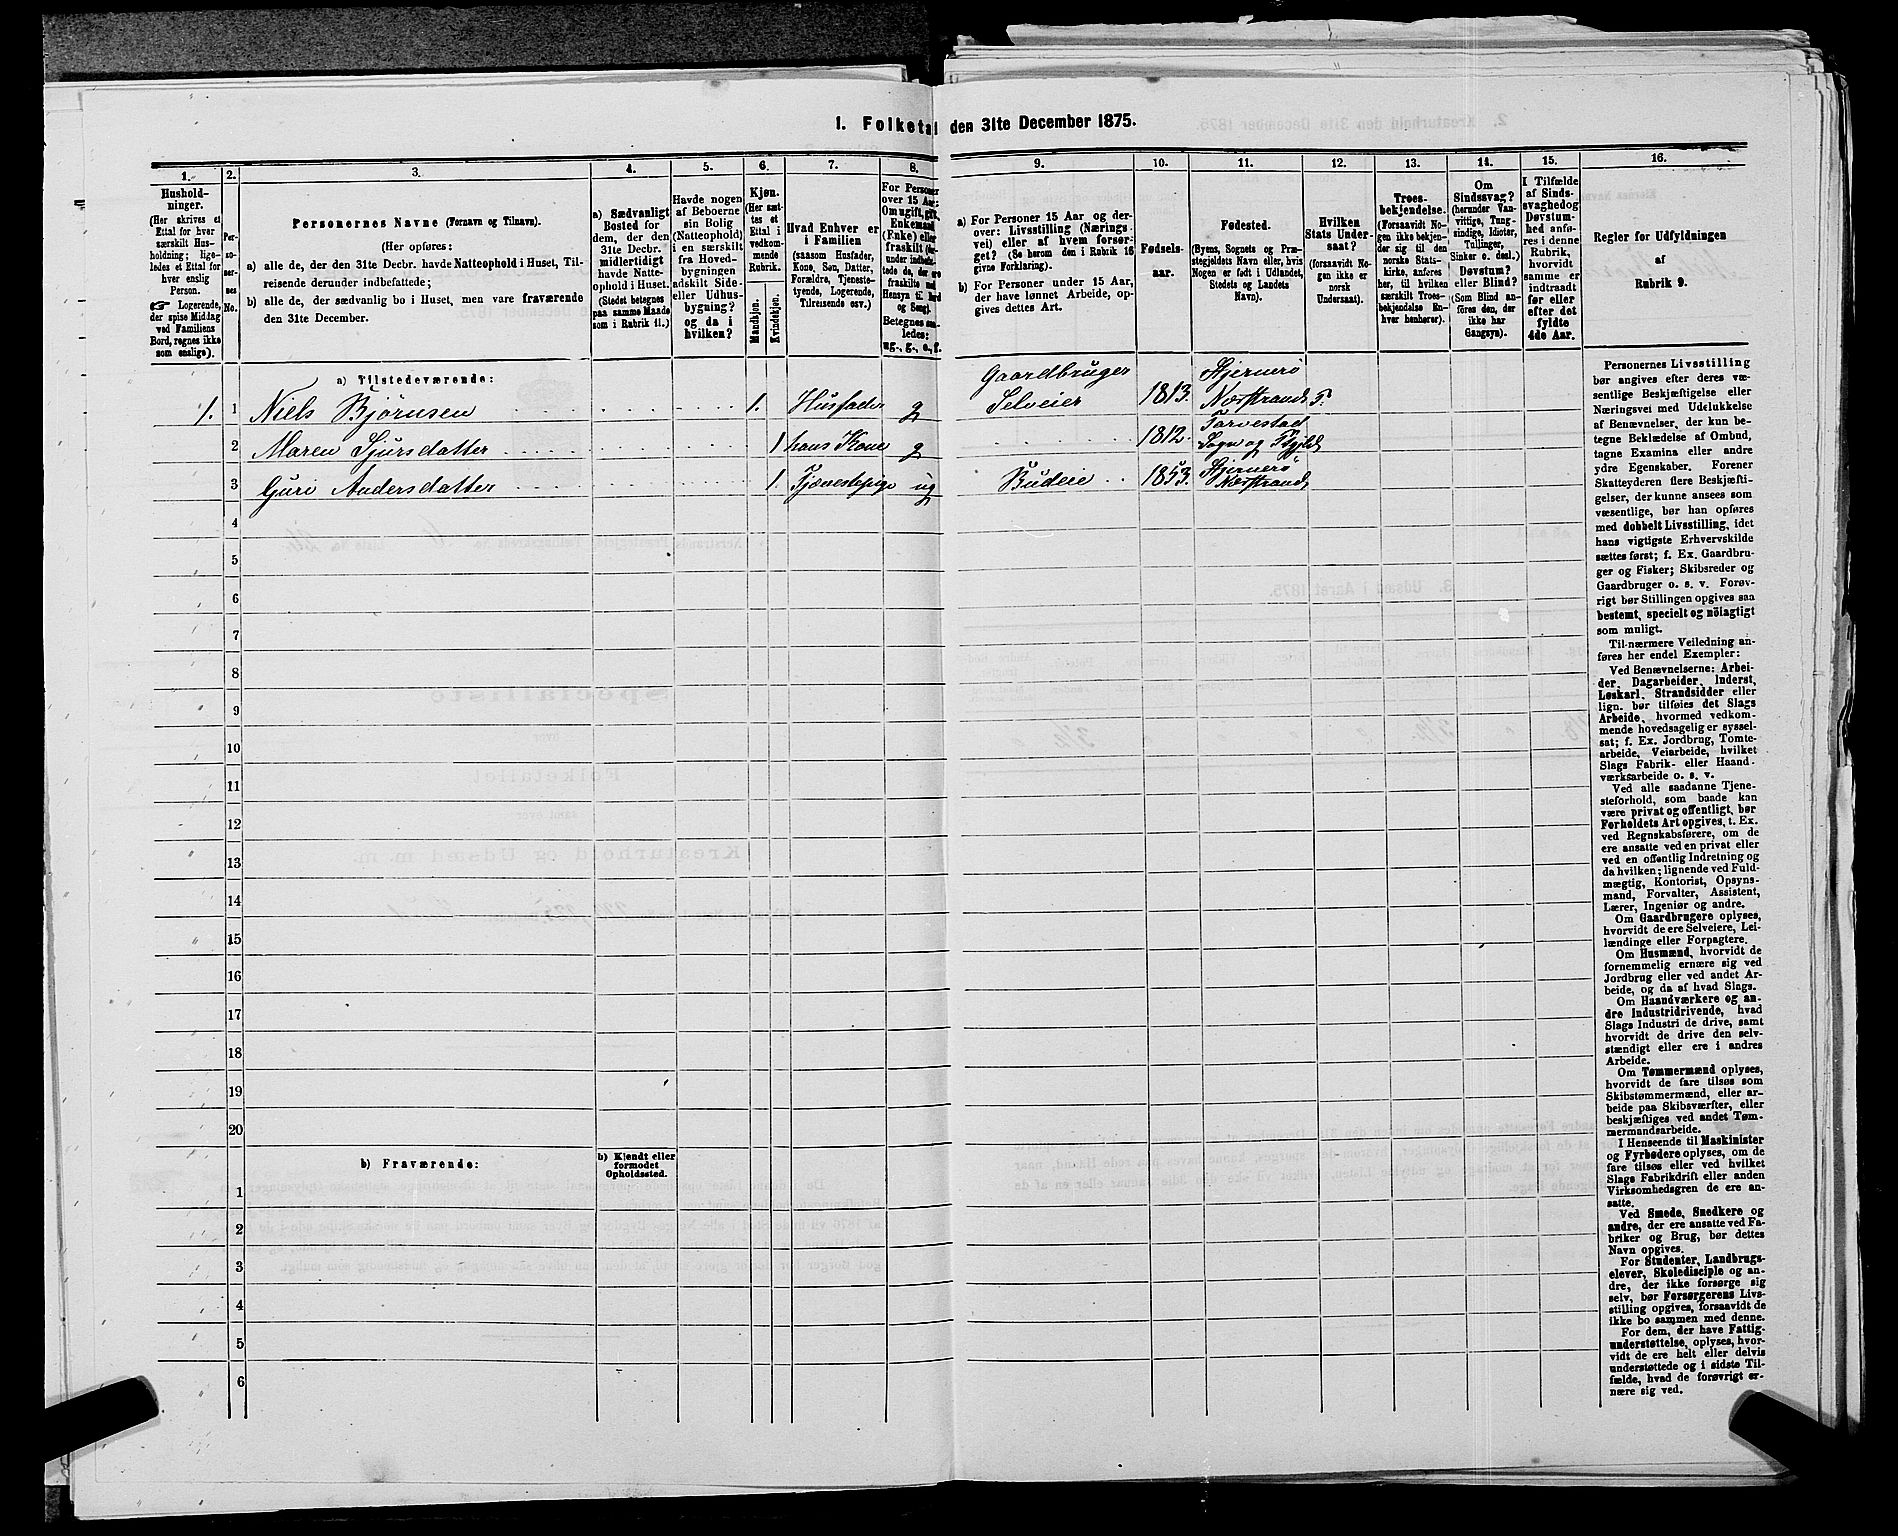 1. Folketal den 31te December 1875.
1. 2. 3. 4. 5. 6. 7. 8. 9. 10. 11. 12. 13. 14. 15. 16.
Hushold-
ninger.
(Her skrives et
Ettal for hver
særskilt Hus-
holdning; lige-
ledes et Ettal for
hver enslig
Person.
☞ Logerende,
der spise Middag
ved Familiens
Bord, regnes ikke
som enslige).
Per-
so-
ner-
nes
No.
Personernes Navne (Fornavn og Tilnavn).
(Her opføres:
a) alle de, der den 31te Decbr. havde Natteophold i Huset, Til-
reisende derunder indbefattede;
b) alle de, der sædvanlig bo i Huset, men vare fraværende
den 31te December.
a) Sædvanligt
Bosted for
dem, der den
31te Decbr.
midlertidigt
havde Natte-
ophold i Huset.
(Stedet betegnes
paa samme Maade
som i Rubrik 11.)
Havde nogen
af Beboerne
sin Bolig
(Natteophold)
i en særskilt
fra Hoved-
bygningen
adskilt Side-
eller Udhus-
bygning?
og da i
hvilken?
Kjøn.
(Her sæt-
tes et
Ettal i
vedkom-
mende
Rubrik.
Mandkjøn.
Kvindekjøn.
Hvad Enhver er
i Familien
(saasom Husfader,
Kone, Søn, Datter,
Forældre, Tjeneste-
tyende, Logerende,
Tilreisende osv.)
For Personer
over 15 Aar:
Om ugift, gift,
Enkemand
(Enke) eller
fraskilt (her-
under indbefat-
tede de, der ere
fraskilte med
Hensyn til Bord
og Seng).
Betegnes saa-
ledes:
ug., g., e., f.
a) For Personer 15 Aar og der-
over: Livsstilling (Nærings-
vei) eller af hvem forsør-
get? (Se herom den i Rubrik 16
givne Forklaring).
b) For Personer under 15 Aar,
der have lønnet Arbeide, op-
gives dettes Art.
Fødsels-
aar.
Fødested.
(Byens, Sognets og Præ-
stegjeldets Navn eller, hvis
Nogen er født i Udlandet,
Stedets og Landets
Navn).
Hvilken
Stats Under-
saat?
(forsaavidt No-
gen ikke er
norsk
Undersaat).
Troes-
bekjendelse.
(Forsaavidt No-
gen ikke bekjen-
der sig til den
norske Stats-
kirke, anføres
her, til hvilken
særskilt Troes-
bekjendelse En-
hver henhører).
Om
Sindssvag?
(herunder Van-
vittige, Tung-
sindige, Idioter,
Tullinger,
Sinker o. desl.)
Døvstum?
eller Blind?
(Som Blind an-
føres den, der
ikke har
Gangsyn).
I Tilfælde
af Sinds-
svaghed og
Døvstum-
hed anfø-
res i denne
Rubrik,
hvorvidt
samme er
indtraadt
før eller
efter det
fyldte
4de Aar.
Regler for Udfyldningen
af
Rubrik 9.
a) Tilstedeværende:
1. 1 Niels Bjørnsen 1. Husfader g Gaardbruger Selveier 1813. Hjernerö Nærstrands P.
2 Maren Sjursdatter 1 hans Kone g 1812. Torvestad Sogn og Prgjeld
3 Guri Andersdatter 1 Tjenestepige ug Budeie 1853. Hjernerö Nærstrands
4
5
6
7
8
9
10
11
12
13
14
15
16
17
18
19
20
b) Fraværende:
b) Kjendt eller
formodet
Opholdssted.
1
2
3
4
5
6
Personernes Livsstilling
bør angives efter deres væ-
sentlige Beskjæftigelse eller
Næringsvei med Udelukkelse
af Benævnelser, der kun be-
tegne Beklædelse af Ombud,
tagne Examina eller andre
ydre Egenskaber. Forener
Skatteyderen flere Beskjæfti-
gelser, der kunne ansees som
væsentlige, bør han opføres
med dobbelt Livsstilling, idet
hans vigtigste Erhvervskilde
sættes først; f. Ex. Gaardbru-
ger og Fisker; Skibsreder og
Gaardbruger o. s. v. Forøv-
rigt bør Stillingen opgives saa
bestemt, specielt og nöiagtigt
som muligt.
Til nærmere Veiledning an-
føres her endel Exempler:
Ved Benævnelserne: Arbei-
der, Dagarbeider, Inderst,
Løskarl, Strandsidder eller
lign. bør tilføies det Slags
Arbeide, hvormed vedkom-
mende hovedsagelig er syssel-
sat; f. Ex. Jordbrug, Tomte-
arbeide, Veiarbeide, hvilket
Slags Fabrik- eller Haand-
værksarbeide o. s. v.
Ved alle saadanne Tjene-
steforhold, som baade kan
være privat og offentligt, bør
Forholdets Art opgives, t. Ex.
ved Regnskabsførere, om de
ere ansatte ved en privat eller
ved en offentlig Indretning og
da hvilken; lignende ved Fuld-
mægtig, Kontorist, Opsyns-
mand, Forvalter, Assistent,
Lærer, Ingeniør og andre.
Om Gaardbrugere oplyses,
hvorvidt de ere Selveiere, Lei-
lændinge eller Forpagtere.
Om Husmænd, hvorvidt de
fornemmelig ernære sig ved
Jordbrug eller ved andet Ar-
beide, og da af hvad Slags.
Om Haandværkere og an-
dre Industridrivende, hvad
Slags Industri de drive, samt
hvorvidt de drive den selv-
stændigt eller ere i andres
Arbeide.
Om Tømmermænd oplyses,
hvorvidt de fare tilsøs som
Skibstømmermænd, eller ar-
beide paa Skibsværfter, eller
beskjæftiges ved andet Tøm-
mermandsarbeide.
I Henseende til Maskinister
og Fyrbødere oplyses, om de
fare tilsøs eller ved hvilket
Slags Fabrikdrift eller anden
Virksomhedsgren de ere an-
satte.
Ved Smede, Snedkere og
andre, der ere ansatte ved Fa-
briker og Brug, bør dettes
Navn opgives.
For Studenter, Landbrugs-
elever, Skoledisciple og an-
dre, der ikke forsørge sig
selv, bør Forsørgerens Livs-
stilling opgives, forsaavidt de
ikke bo sammen med denne.
For dem, der have Fattig-
understøttelse, oplyses, hvor-
vidt de ere helt eller delvis
understøttede og i sidste Til-
fælde, hvad de forøvrigt er-
nære sig ved.